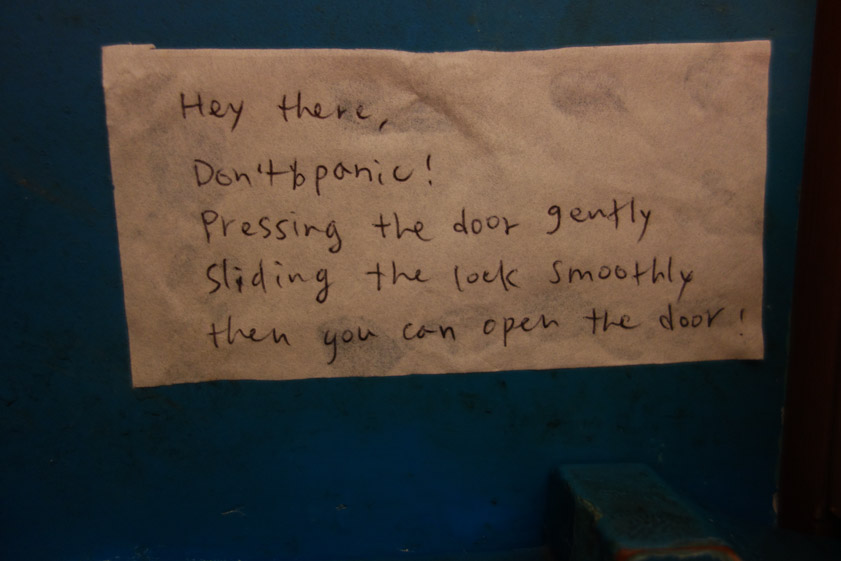 Hey there,
Don't panic!
Pressing the door gently
sliding the lock smoothly
then you can open the door!